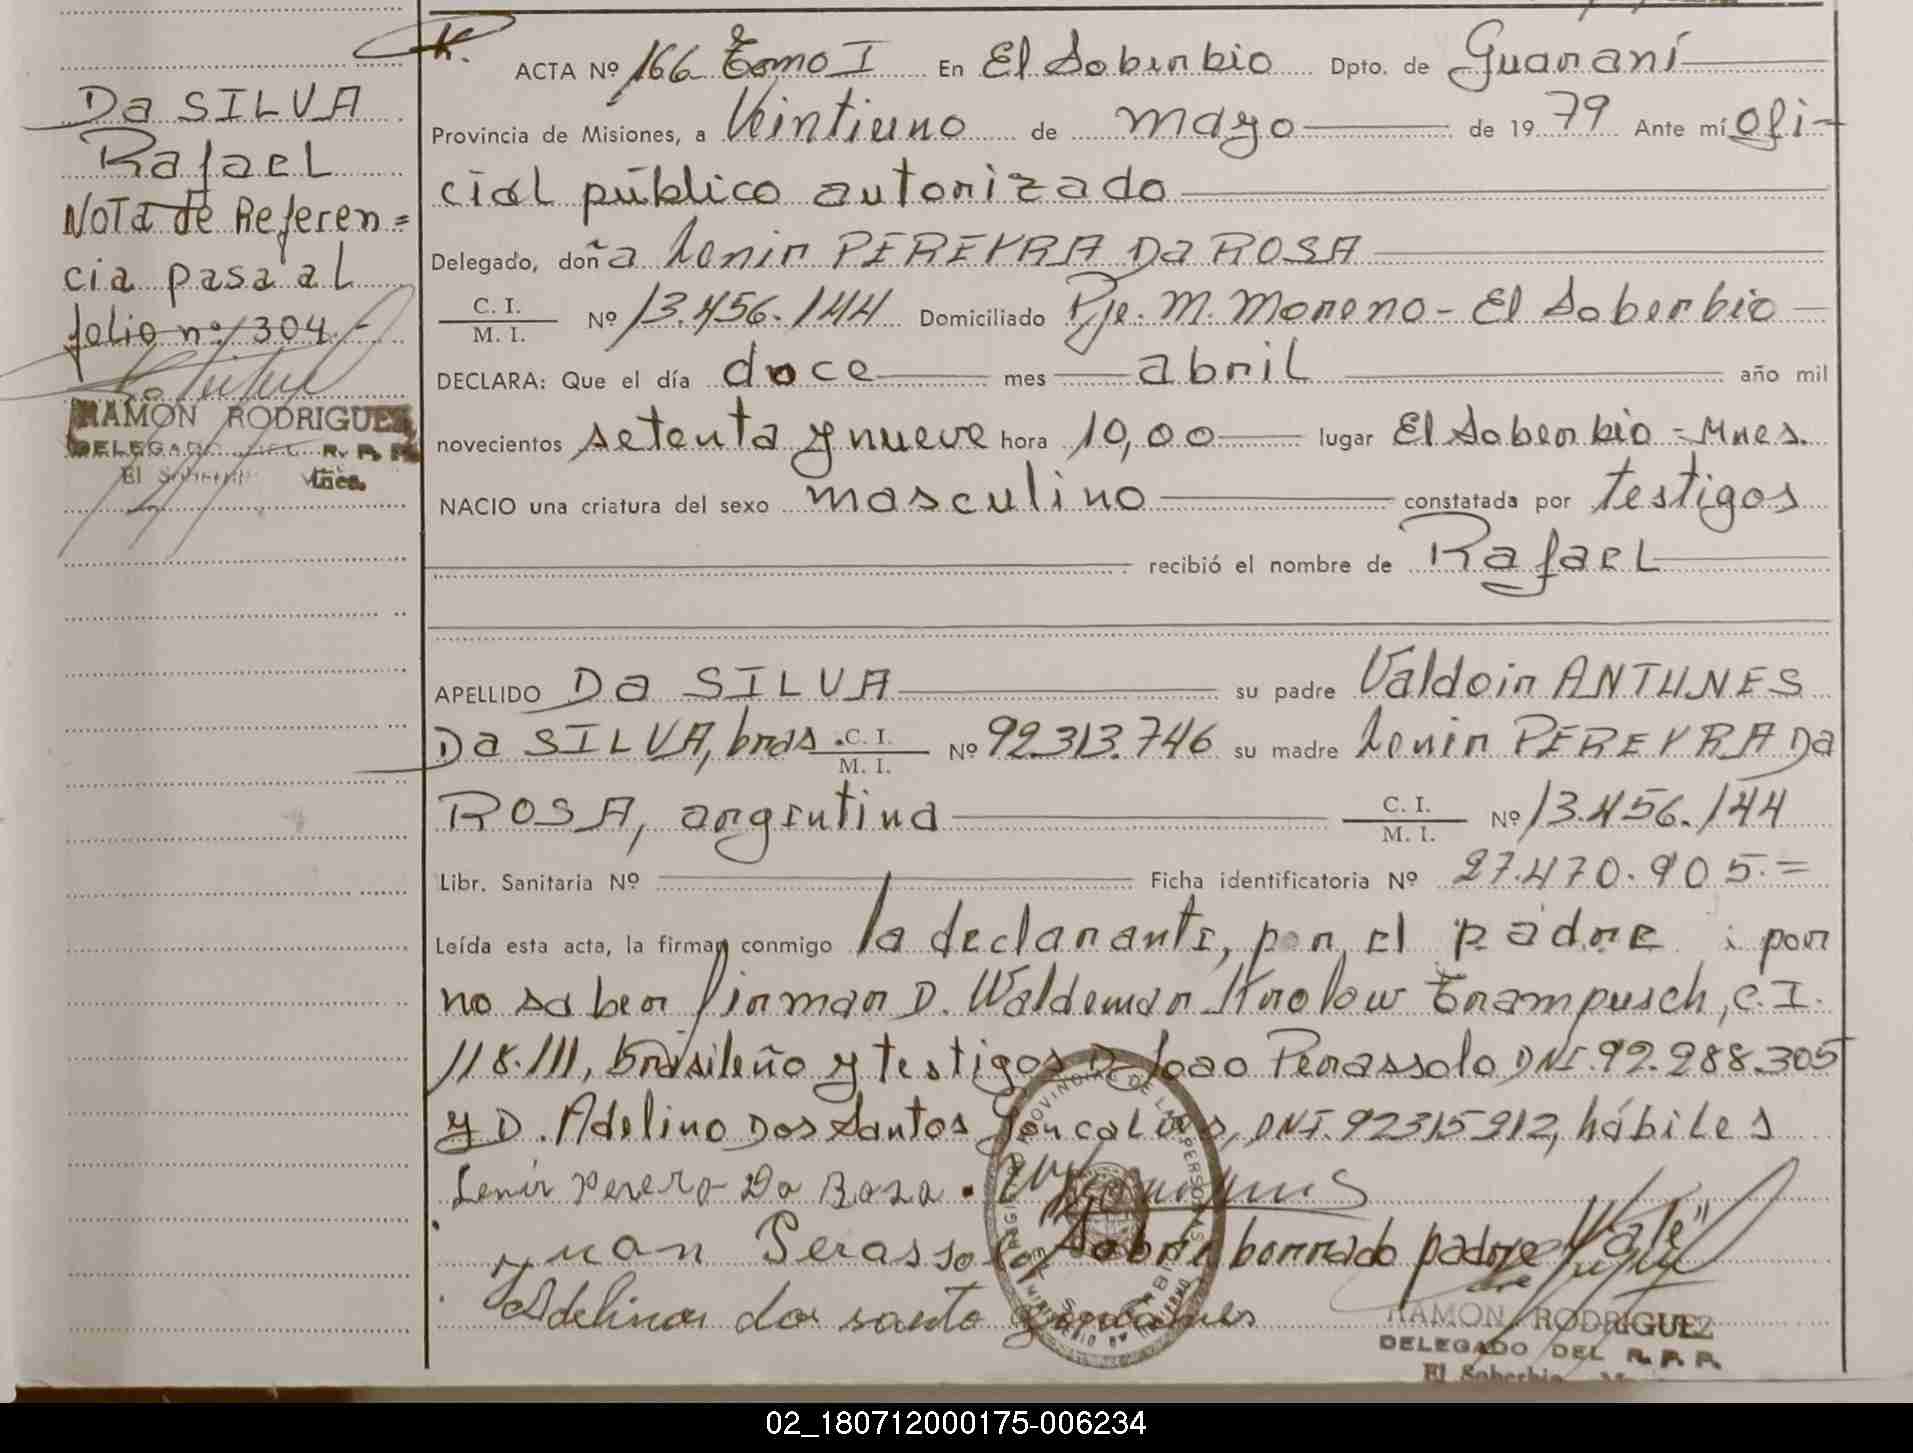 ACTA Nº 166 Tomo I En El Soberbio Dpto. de Guaraní
Provincia de Misiones, a Veintiuno de mayo de 19 79 Ante mí Ofi-
cial público autorizado
Delegado, doña Lenir PEREYRA Da ROSA
C. I.
M. I. Nº 13.456.144 Domiciliado Pje. M. Moreno - El Soberbio
DECLARA: Que el día doce mes abril año mil
novecientos setenta y nueve hora 10,00 lugar El Soberbio - Mnes.
NACIO una criatura del sexo masculino constatada por testigos
recibió el nombre de Rafael
APELLIDO Da SILVA su padre Valdoir ANTUNES
Da SILVA, bras. C. I.
M. I. Nº 92.313.746 su madre Lenir PEREYRA Da
ROSA, argentina C. I.
M. I. Nº 13.456.144
Libr. Sanitaria Nº Ficha identificatoria Nº 27.470.905.=
Leída esta acta, la firman conmigo la declarante, por el padre i por
no saber firmar D. Waldemar Krolow Trampusch, C.I.
118.111, brasileño y testigos D. Joao Perassolo DNI. 92.288.305
y D. Adelino Dos Santos Goncalves, DNI. 92315912, hábiles
Lenir Perera Da Rosa.
Juan Perassolo, Sobre borrado padre "Vale"
Adelino do santo goncalves
RAMON RODRIGUEZ
DELEGADO DEL R. P. P.
El Soberbio
Da SILVA
Rafael
Nota de Referen=
cia pasa al
folio nº 304.-
RAMON RODRIGUEZ
DELEGADO DEL R. P. P.
El Soberbio Mnes.
02_180712000175-006234